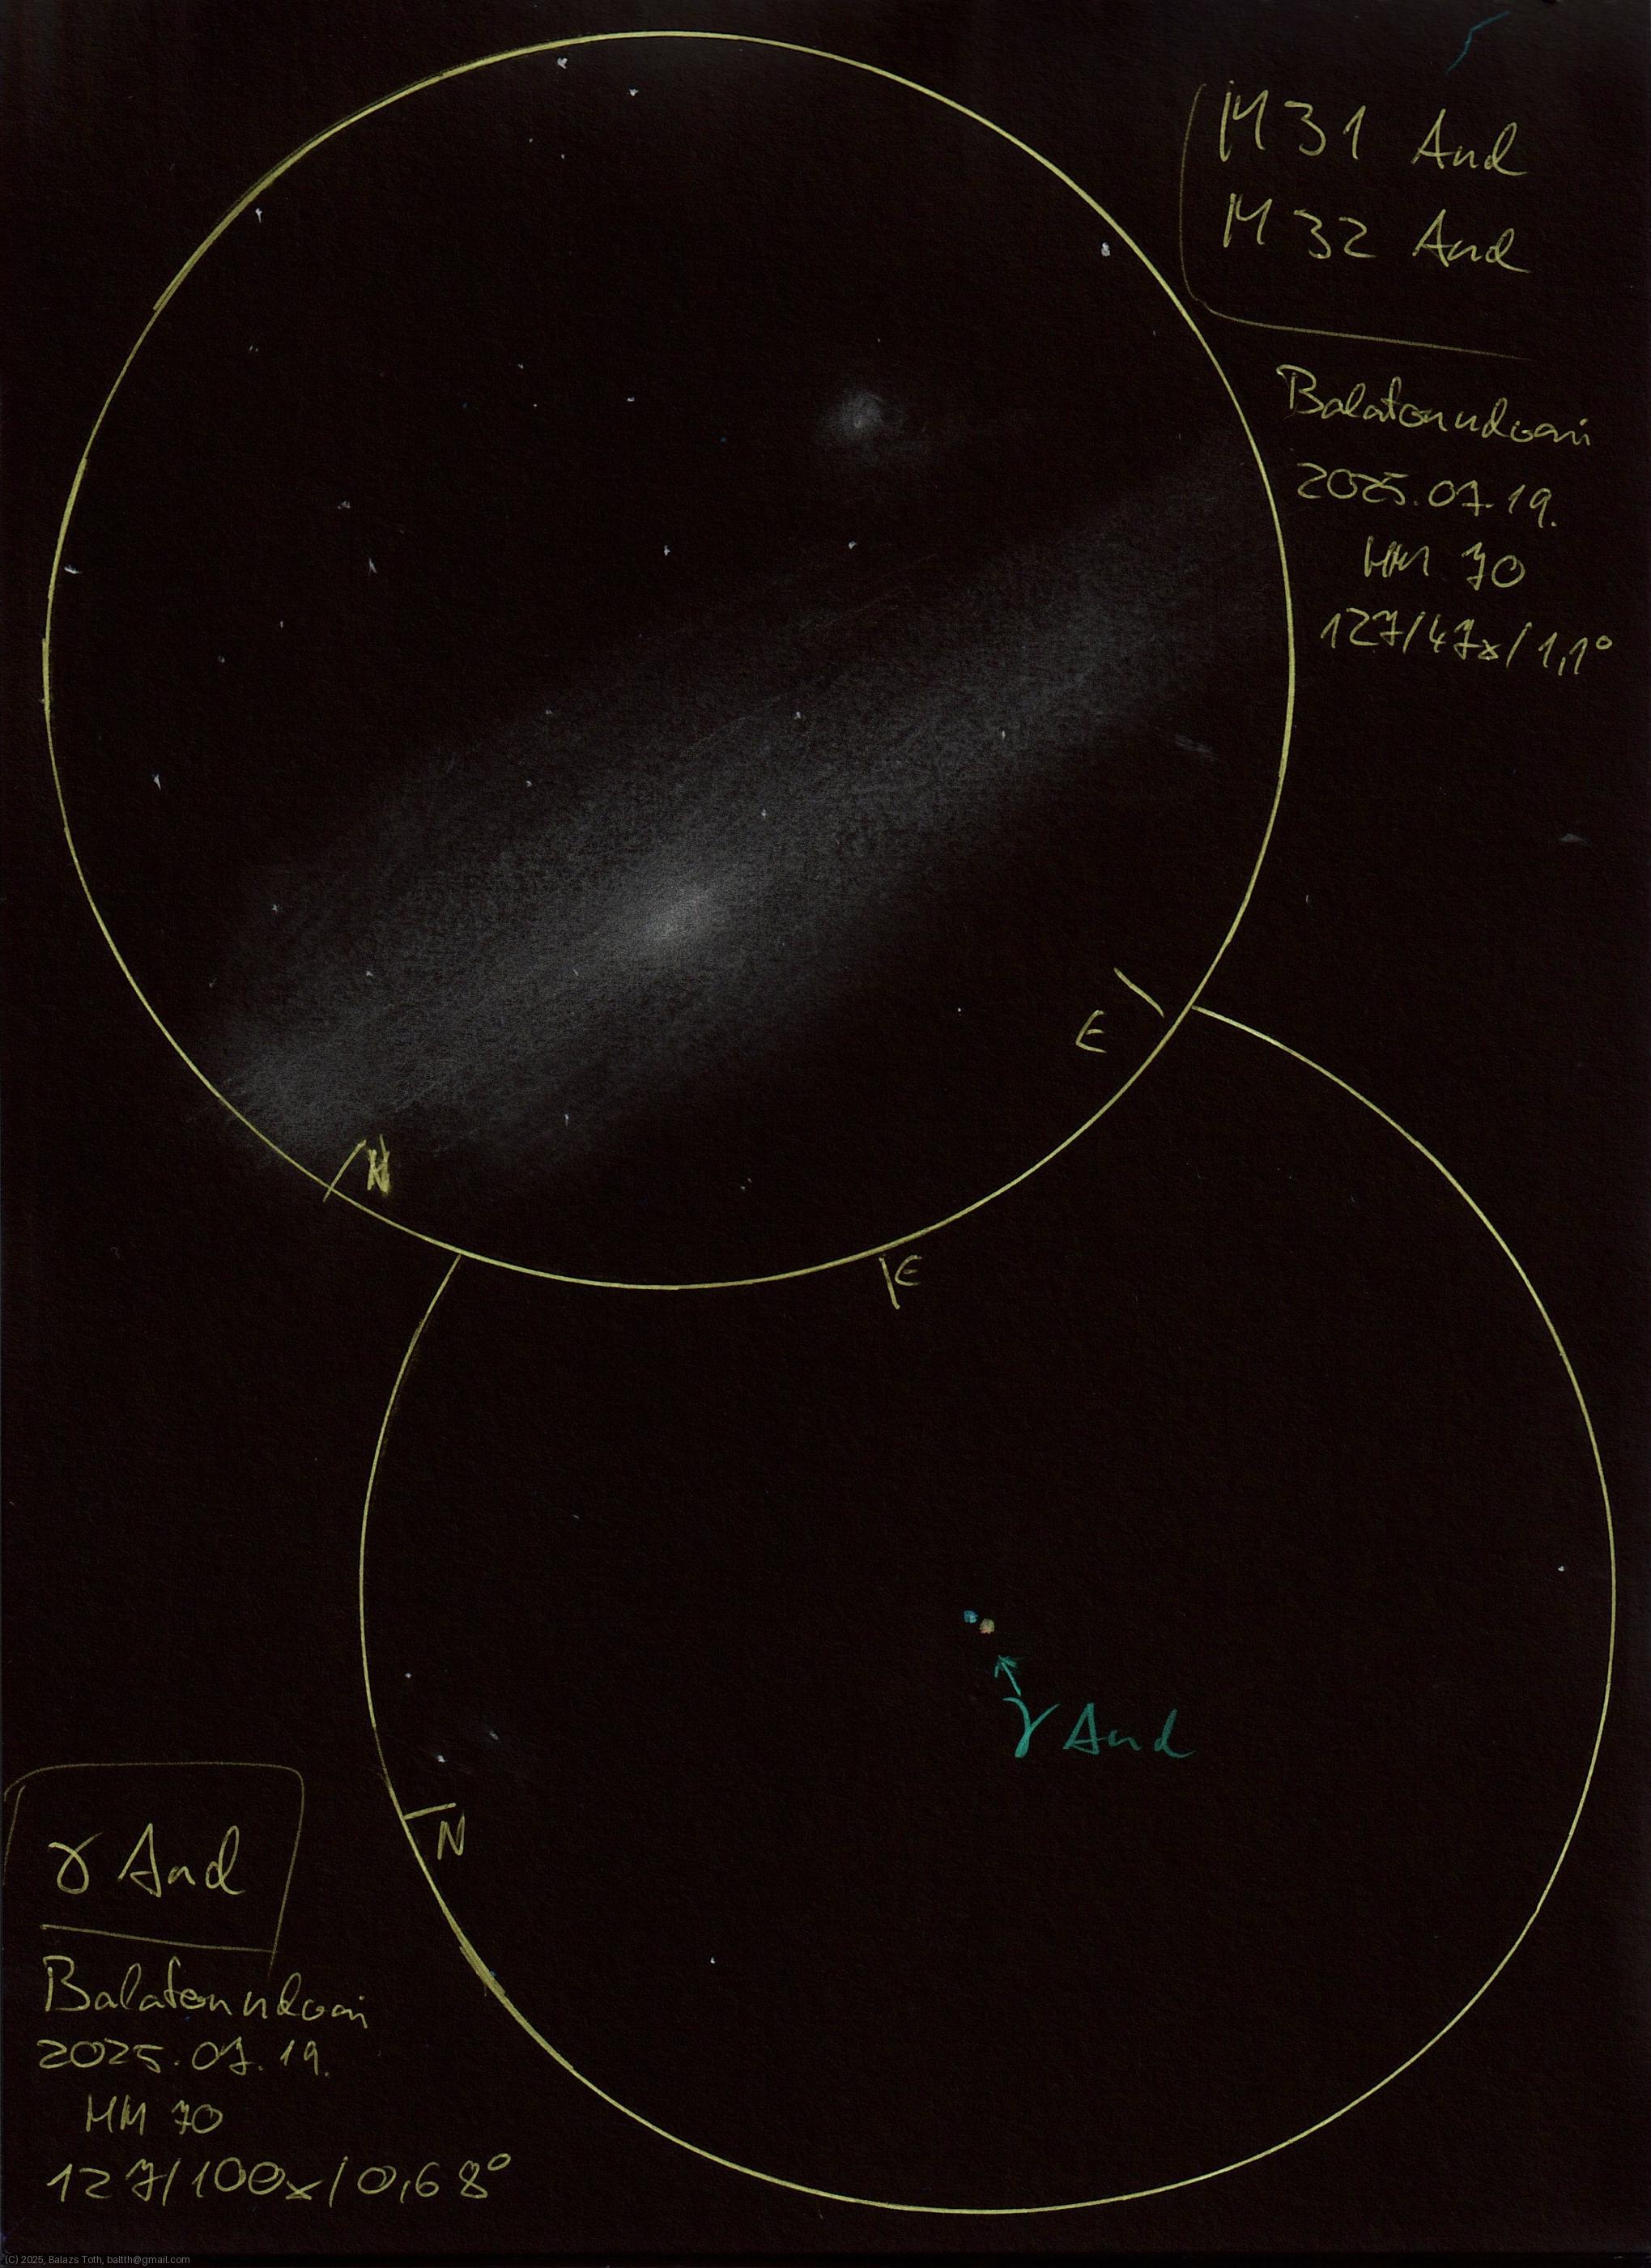 M 31 And
M 32 And
Balatonudvari
2025.07.19.
HM 70
127/47x/1,1°
E
N
E
γ And
N
γ And
Balatonudvari
2025.07.19.
HM 70
127/100x/0,68°
(C) 2025, Balazs Toth, baltth@gmail.com